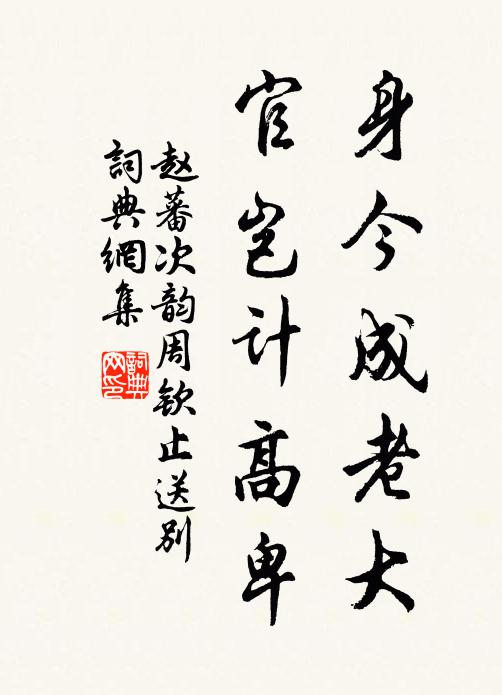 身今成老大
官岂计高卑
赵蕃次韵周钦止送别
詞典網集
詞典网印